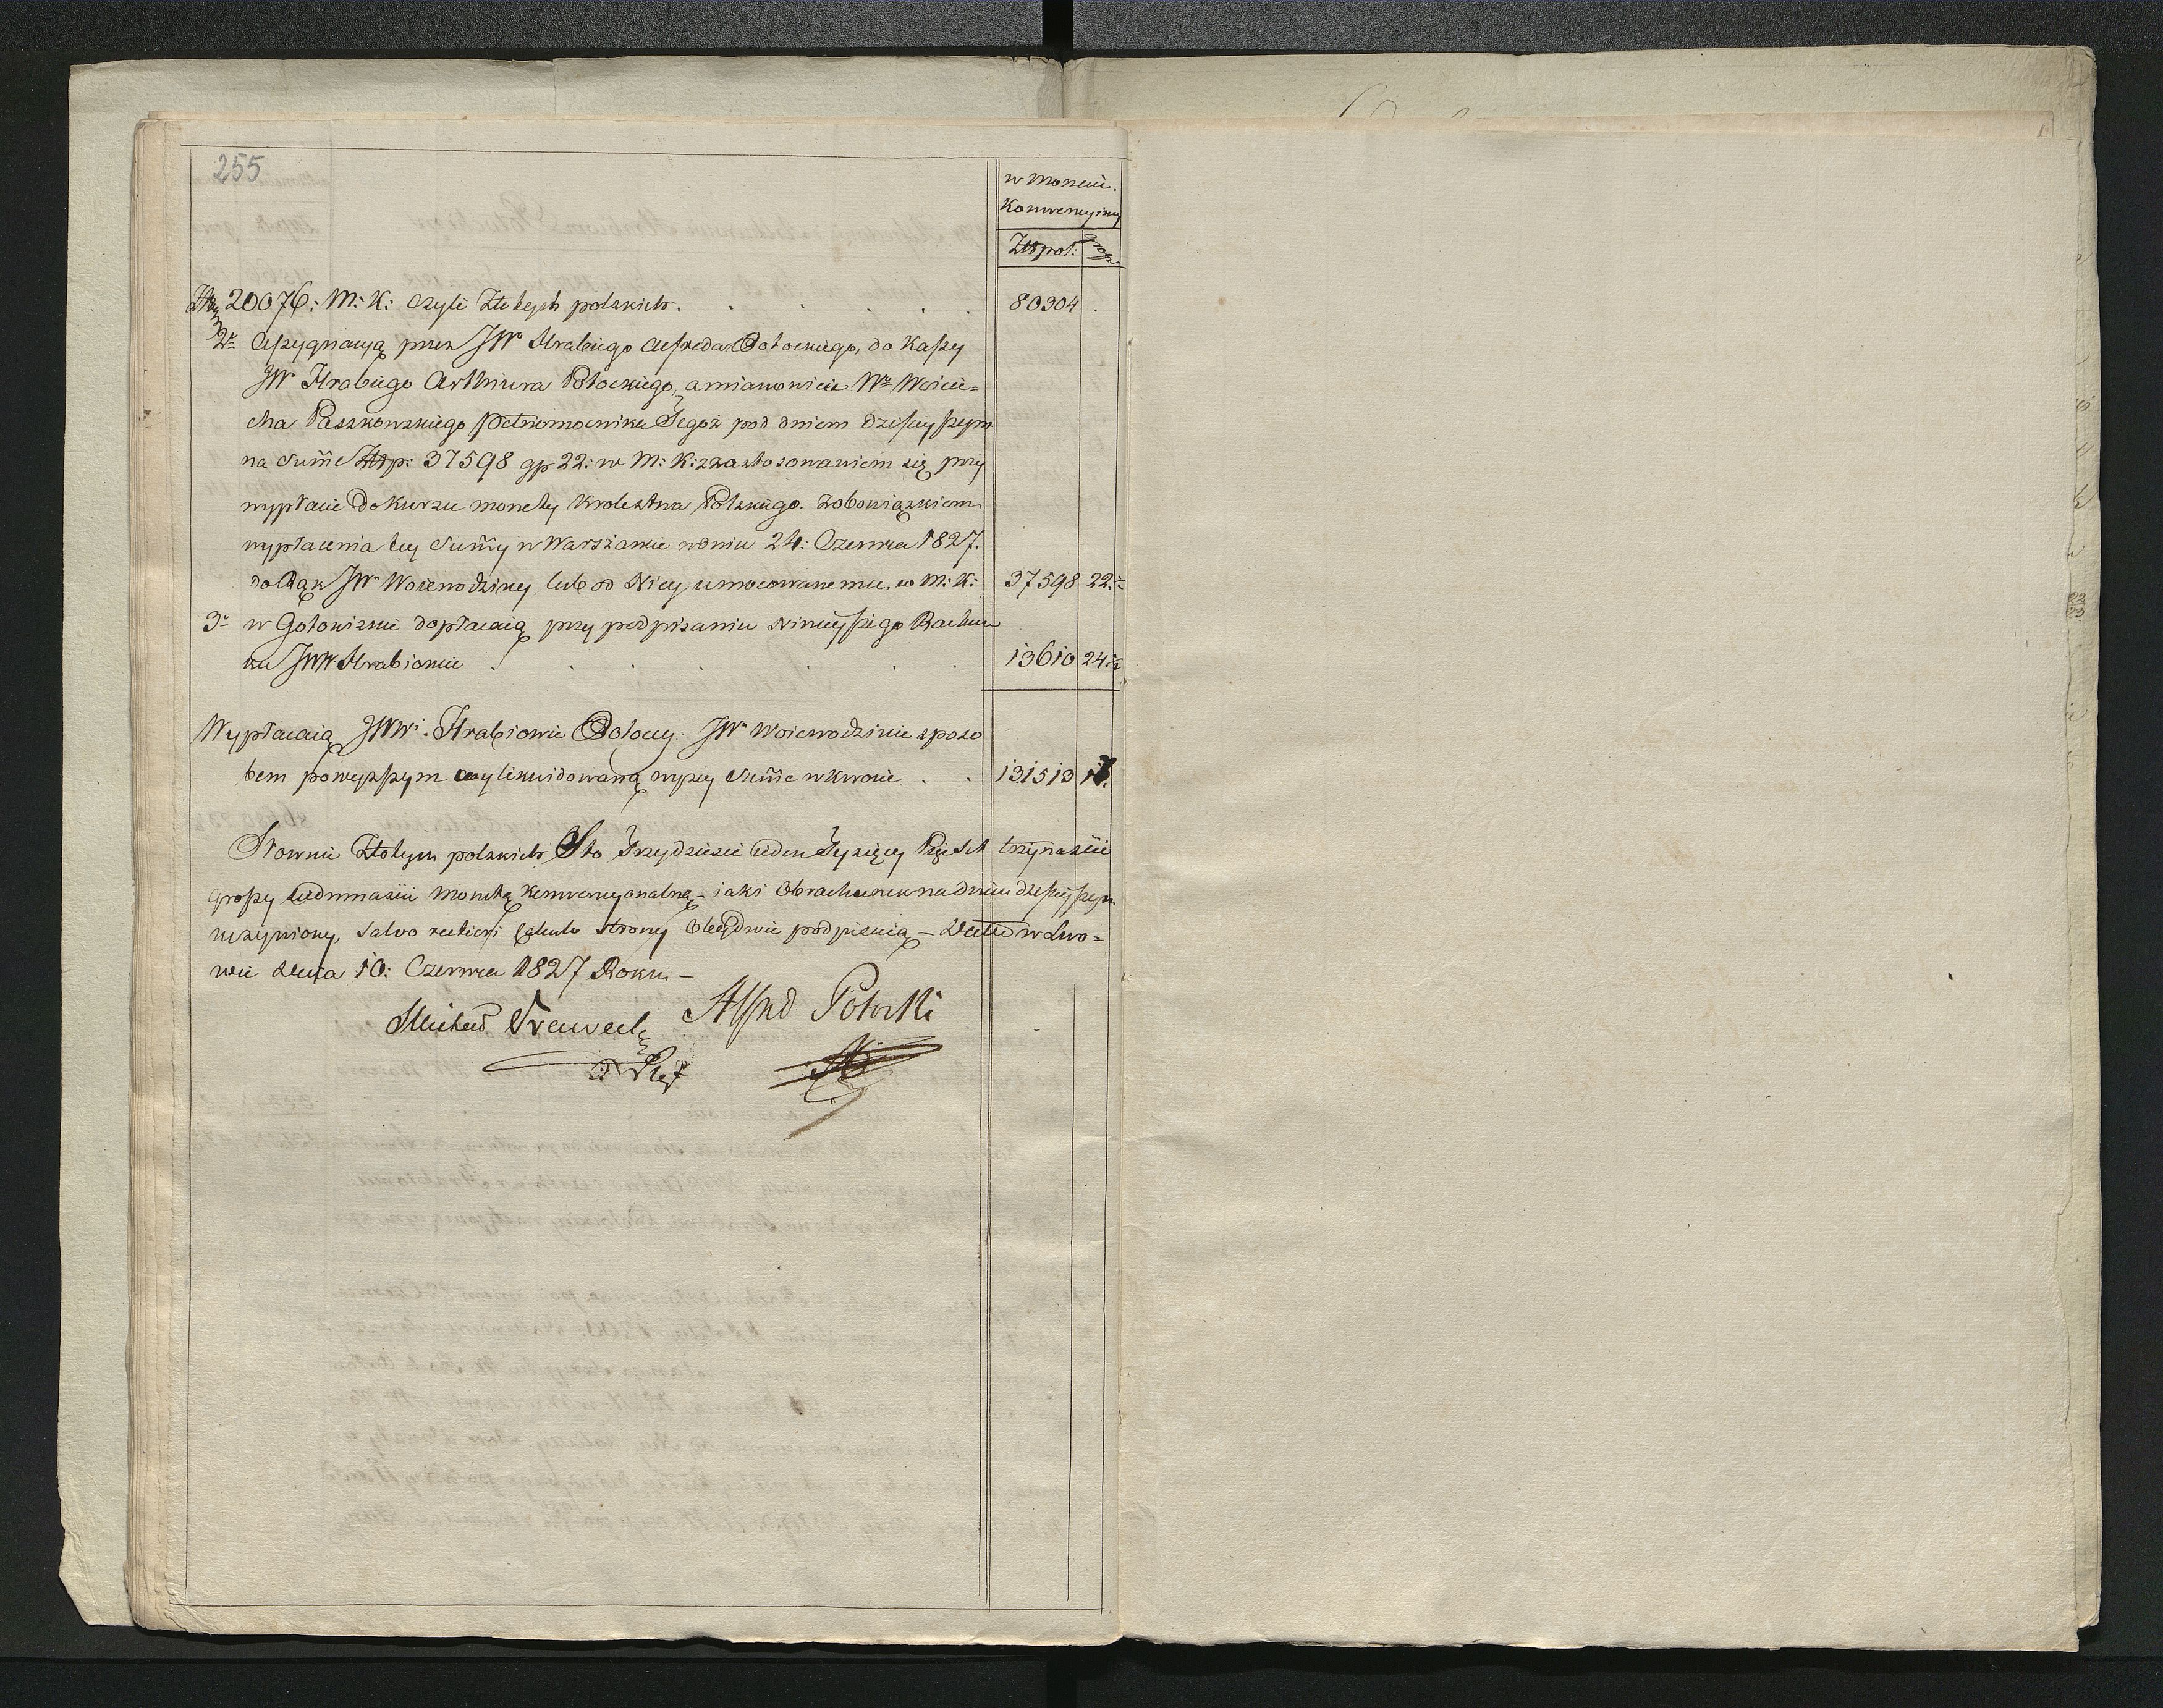 255
w Monecie
Konwencyiney
Złt pol: grosz.
Złr 20076: M: K: czyli Złotych polskich . . . . . 80304 .
2° Assygnacyą przez JW Hrabiego Alfreda Potockiego, do Kassy
JW Hrabiego Arthura Potockiego, a mianowicie W° Woicie=
cha Paszkowskiego Pełnomocnika Tegoż pod dniem dzisieyszym
na Summę Złtp: 37598 gp 22: w M: K: z zastosowaniem się przy
wypłacie do Kursu monety Krolestwa Polskiego. z obowiązkiem
wypłacenia tey Summy w Warszawie w dniu 24: Czerwca 1827.
do Rąk JW Woiewodziney lub od Niey umocowanemu. w M: K: 37598 22 1/2
3° w Gotowiznie dopłacaią przy podpisaniu Ninieyszego Rachun
ku JWW Hrabiowie . . . . . . 13610 24 1/2
Wypłacaią JWWi. Hrabiowie Potoccy. JW Woiewodzinie sposo
bem powyższym wylikwidowaną wyżey Summę w kwocie . . 131513 17.
Słownie Złotych polskich Sto Trzydzieści ieden Tysięcy Pięćset trzynaście
groszy siedmnaście monetą konwencyonalną – iaki Obrachunek na dniu dzisieyszym
uczyniony, salvo rectiori calculo strony Obydwie podpisuią – Datt w Lwo=
wie dnia 10: Czerwca 1827 Roku –
Alfred Potocki
Michał